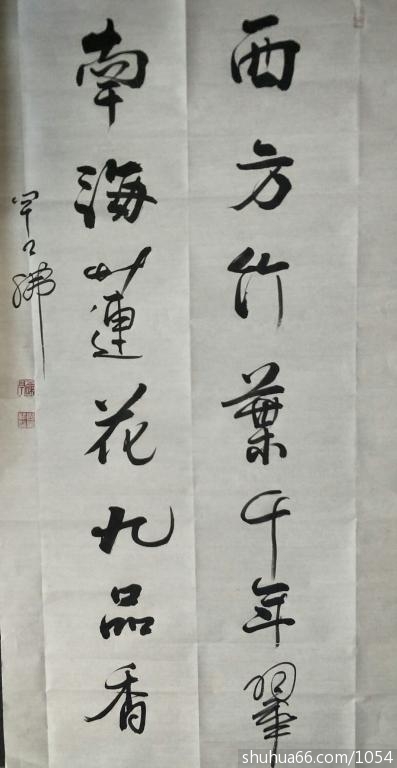 西方竹葉千年翠
南海蓮花九品香
shuhua66.com/1054